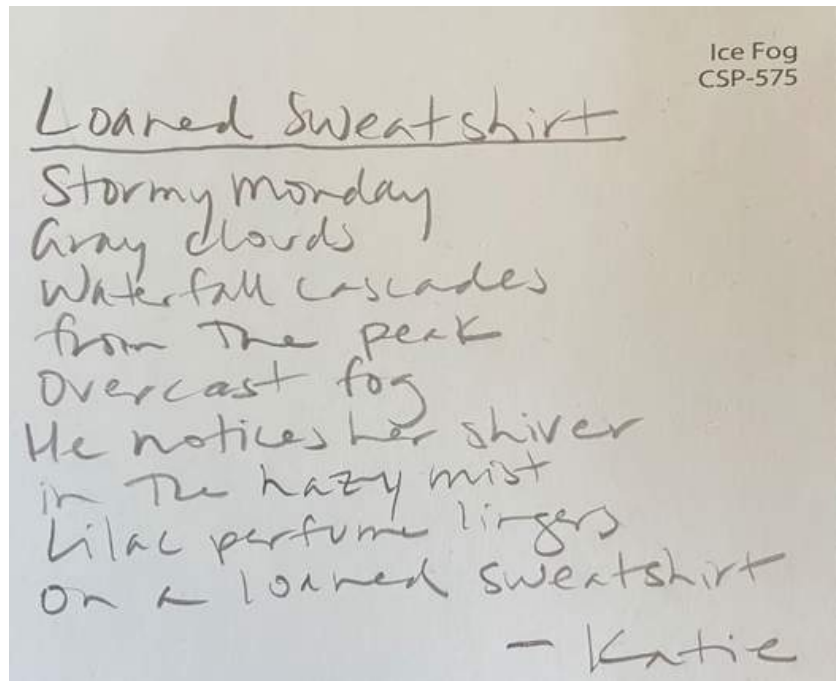 Ice Fog
CSP-575
Loaned Sweatshirt
Stormy Monday
Gray clouds
Waterfall cascades
from the peak
Overcast fog
He notices her shiver
in the hazy mist
Lilac perfume lingers
on a loaned sweatshirt
- Katie